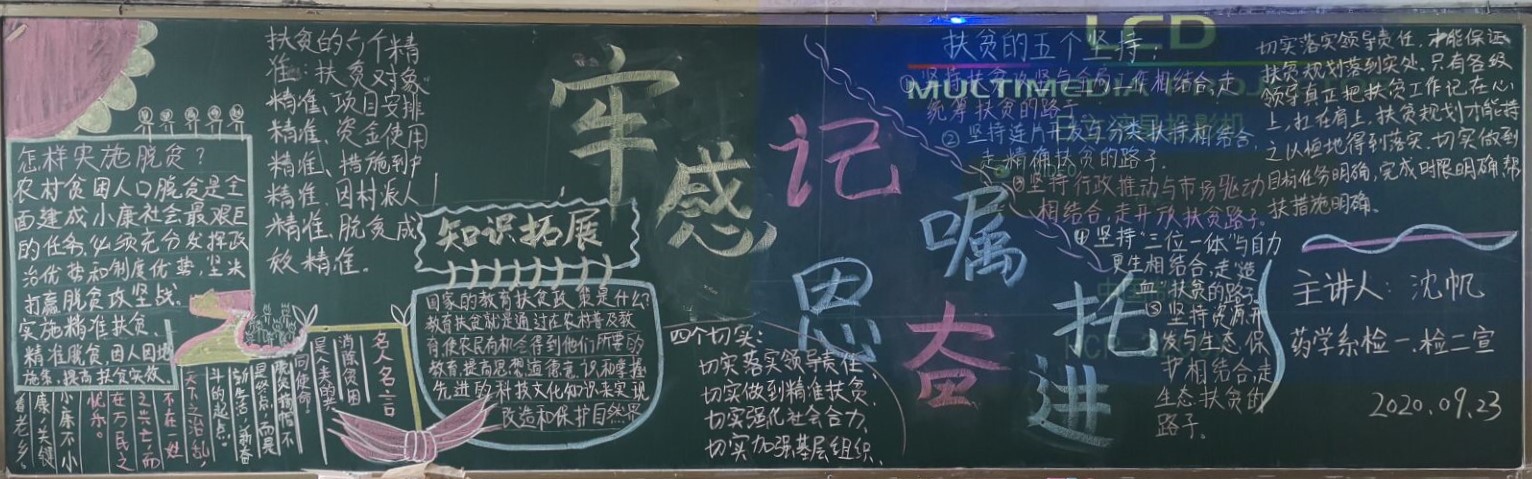 扶贫的六个精
准：扶贫对象
精准、项目安排
精准、资金使用
精准、措施到户
精准、因村派人
精准、脱贫成
效精准。
怎样实施脱贫？
农村贫困人口脱贫是全
面建成小康社会最艰巨
的任务，必须充分发挥政
治优势和制度优势，坚决
打赢脱贫攻坚战。
实施精准扶贫、
精准脱贫，因人因地
施策，提高扶贫实效。
名人名言
消除贫困
是人类的
共同使命。
不是终点，而是
新生活、新奋
斗的起点。
天下之治乱，
不在一姓
之兴亡，而
在万民之
忧乐。
小康不小
康，关键
看老乡。
知识拓展
国家的教育扶贫政策是什么？
教育扶贫就是通过在农村普及教
育，使农民有机会得到他们所要的
教育，提高思想道德意识和掌握
先进的科技文化知识来实现
改造和保护自然界
牢记嘱托
感恩奋进
四个切实：
切实落实领导责任、
切实做到精准扶贫、
切实强化社会合力、
切实加强基层组织、
扶贫的五个坚持：
LCD
MULTIMEDIA
①坚持扶贫攻坚与全局工作相结合，走
统筹扶贫的路子
②坚持连片开发与分类扶持相结合，
走精确扶贫的路子.
③坚持行政推动与市场驱动
相结合，走开放扶贫路子.
④坚持“三位一体”与自力
更生相结合，走“造
血”扶贫的路子
⑤坚持资源开
发与生态保
护相结合，走
生态扶贫的
路子。
切实落实领导责任，才能保证
扶贫规划落到实处。只有各级
领导真正把扶贫工作记在心
上，扛在肩上，扶贫规划才能持
之以恒地得到落实。切实做到
目标任务明确，完成时限明确，帮
扶措施明确。
主讲人：沈帆
药学系检一、检二宣
2020.09.23